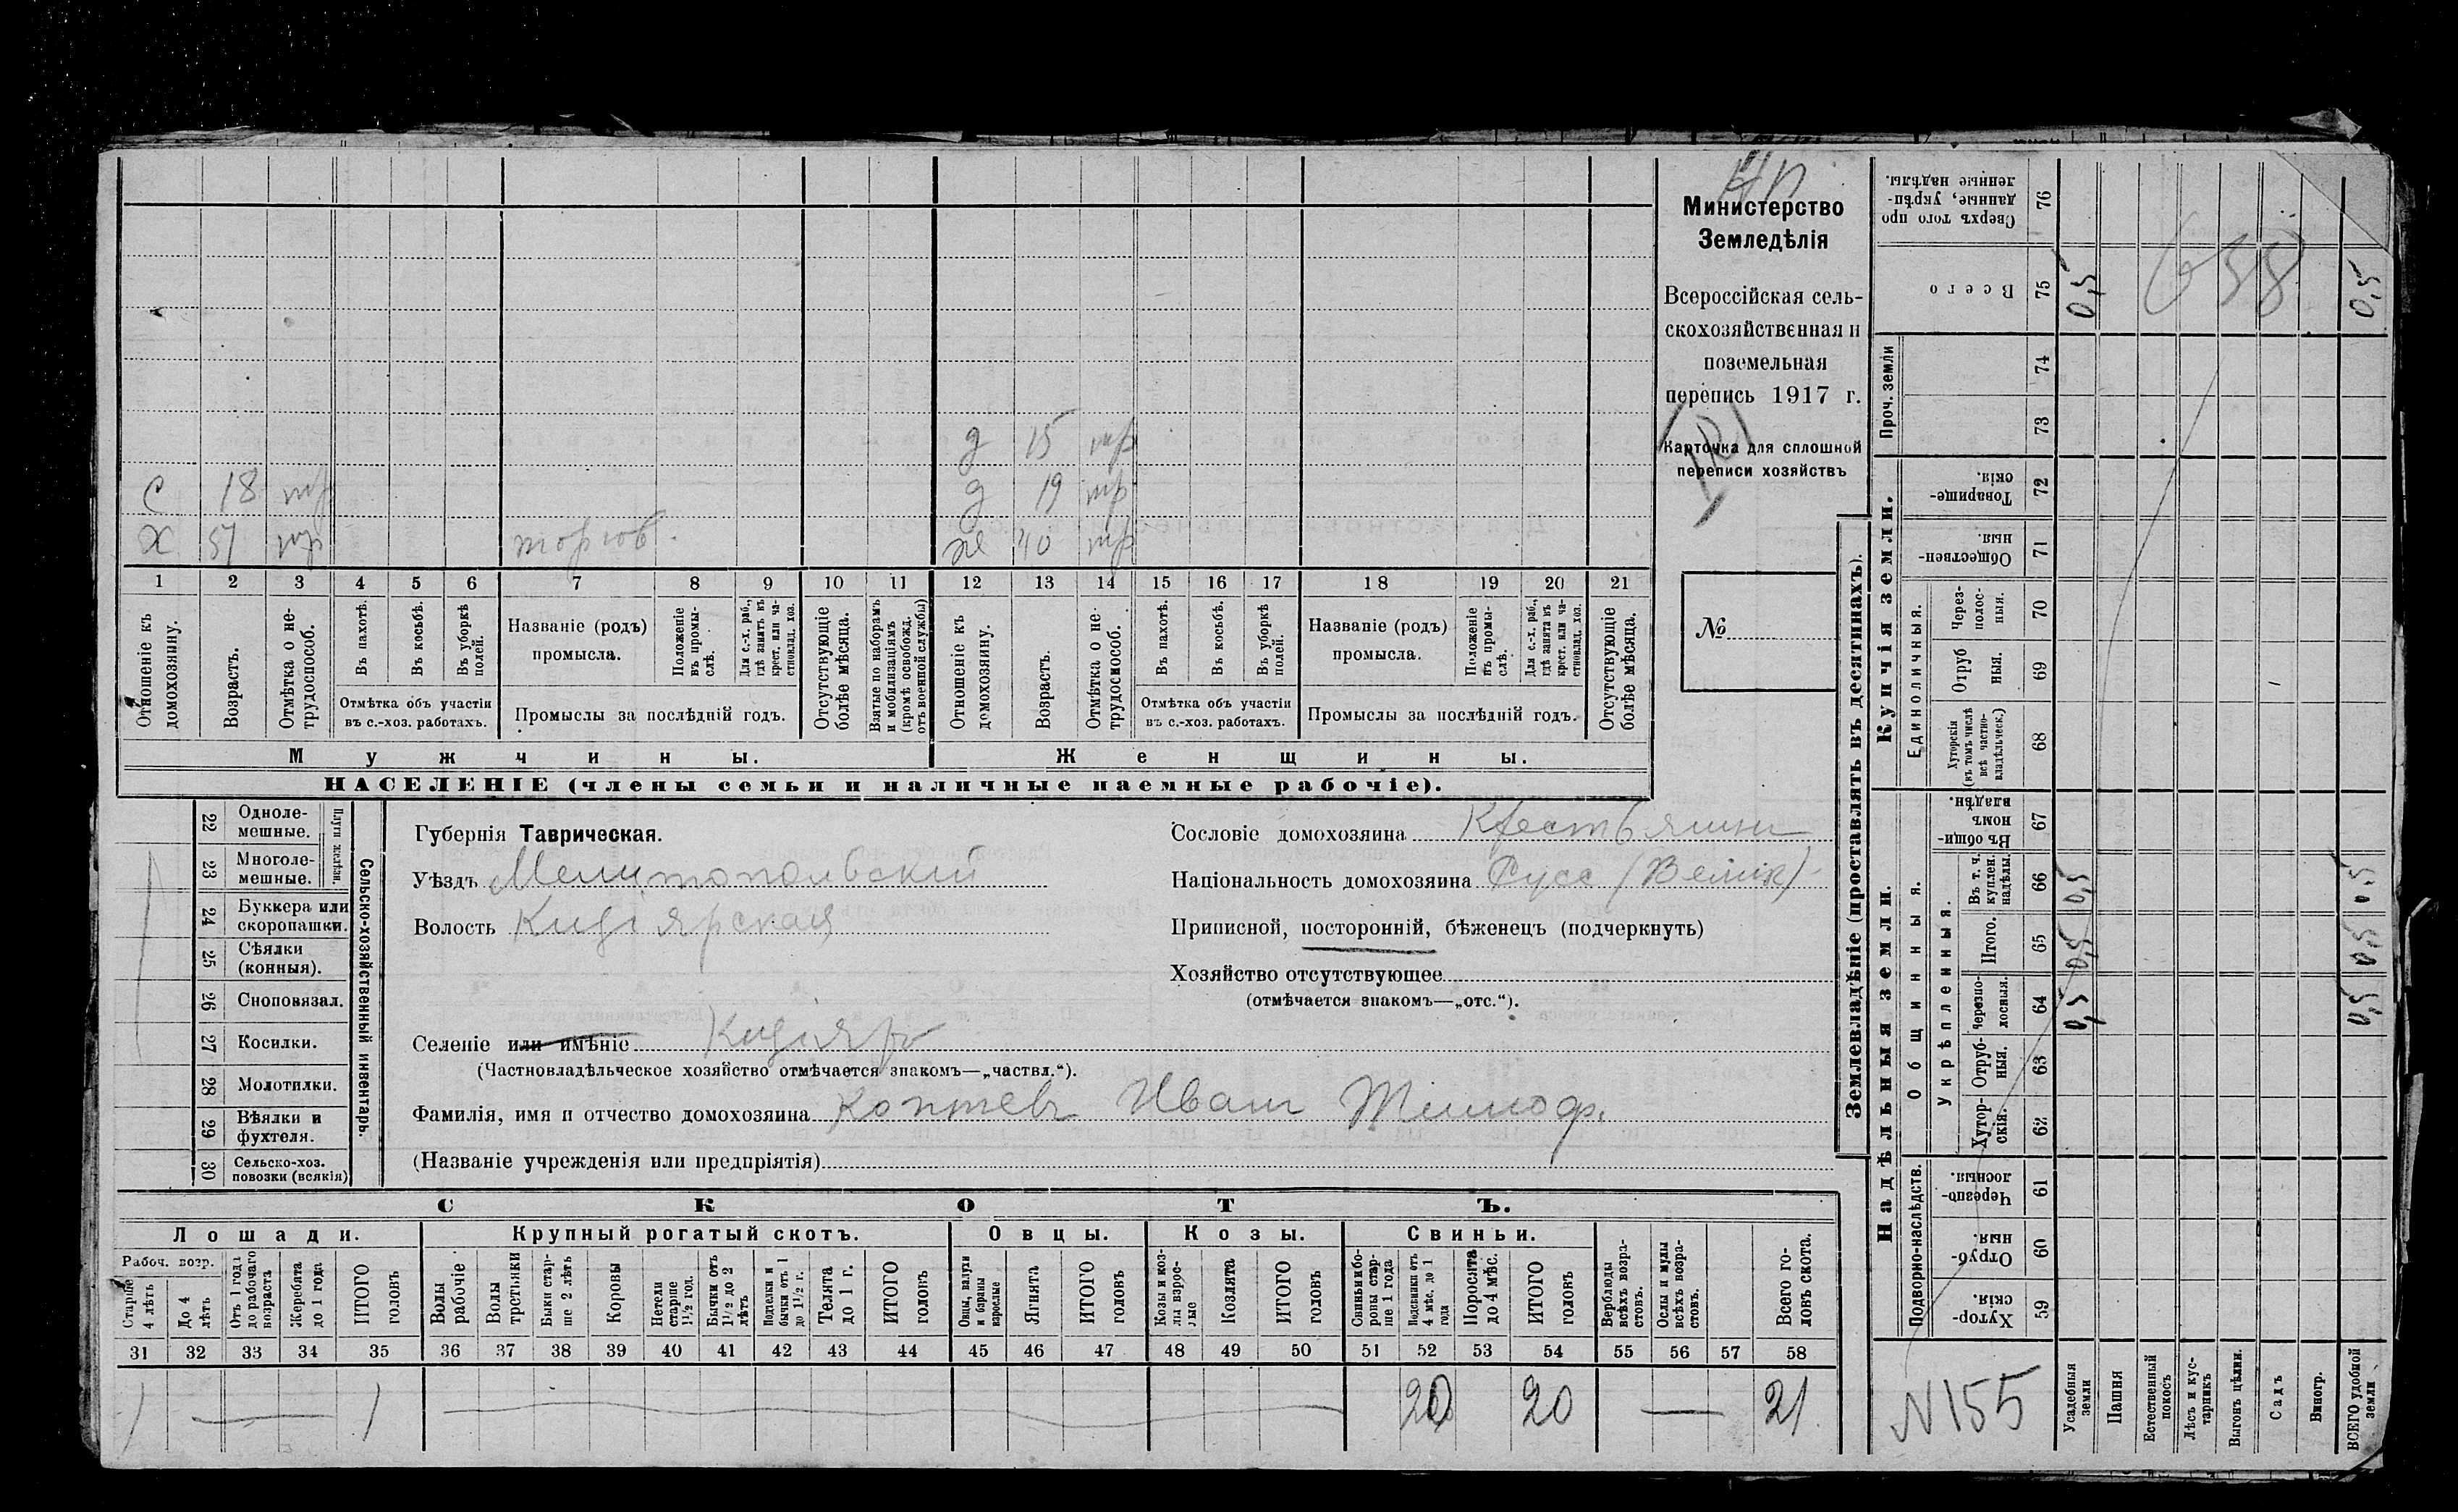 Министерство
Земледѣлія
Всероссійская сель-
скохозяйственная и
поземельная
перепись 1917 г.
Карточка для сплошной
переписи хозяйствъ
№
д 15 тр
с 18 тр д 19 тр
х 51 тр торгов. же 40 тр
1 2 3 4 5 6 7 8 9 10 11 12 13 14 15 16 17 18 19 20 21
Отношеніе къ домохозяину.
Возрастъ.
Отмѣтка о не-трудоспособ.
Въ пахотѣ.
Въ косьбѣ.
Въ уборкѣ полей.
Отмѣтка объ участіи
въ с.-хоз. работахъ.
Названіе (родъ)
промысла.
Положеніе въ промы-слѣ.
Для с.-х. раб., гдѣ занятъ въ крест. или ча-стновлад. хоз.
Промыслы за послѣдній годъ.
Отсутствующіе болѣе мѣсяца.
Взятые по наборамъ и мобилизаціямъ (кромѣ освобожд. отъ военной службы)
Отношеніе къ домохозяину.
Возрастъ.
Отмѣтка о не-трудоспособ.
Въ пахотѣ.
Въ косьбѣ.
Въ уборкѣ полей.
Отмѣтка объ участіи
въ с.-хоз. работахъ.
Названіе (родъ)
промысла.
Положеніе въ промы-слѣ.
Для с.-х. раб., гдѣ занята въ крест. или ча-стновлад. хоз.
Промыслы за послѣдній годъ.
Отсутствующіе болѣе мѣсяца.
Мужчины. Женщины.
НАСЕЛЕНІЕ (члены семьи и наличные наемные рабочіе).
22 Одноле-мешные.
23 Многоле-мешные.
Плуги желѣзн.
24 Буккера или скоропашки.
25 Сѣялки (конныя).
26 Сноповязал.
27 Косилки.
28 Молотилки.
29 Вѣялки и фухтеля.
30 Сельско-хоз. повозки (всякія)
Сельско-хозяйственный инвентарь.
Губернія Таврическая.
Уѣздъ Мелитопольский
Волость Кизіярская
Селеніе или имѣніе Кизіяръ
(Частновладѣльческое хозяйство отмѣчается знакомъ—„частвл.“).
Фамилія, имя и отчество домохозяина Коптевъ Иван Тимоф.
(Названіе учрежденія или предпріятія)
Сословіе домохозяина Крестьянин
Національность домохозяина Русс (Велик)
Приписной, посторонній, бѣженецъ (подчеркнуть)
Хозяйство отсутствующее
(отмѣчается знакомъ—„отс.“).
СКОТЪ.
Лошади. Крупный рогатый скотъ. Овцы. Козы. Свиньи.
Рабоч. возр.
Старше 4 лѣтъ
До 4 лѣтъ
Отъ 1 года до рабочаго возраста
Жеребята до 1 года
ИТОГО головъ
Волы рабочіе
Волы третьяки
Быки стар-ше 2 лѣтъ
Коровы
Нетели старше 1½ год.
Бычки отъ 1½ до 2 лѣтъ
Подтелки и бычки отъ 1 до 1½ г.
Телята до 1 г.
ИТОГО головъ
Овцы, валухи и бараны взрослые
Ягнята
ИТОГО головъ
Козы и коз-лы взрос-лые
Козлята
ИТОГО головъ
Свиньи бо-ровы стар-ше 1 года
Подсвинки отъ 4 мѣс. до 1 года
Поросята до 4 мѣс.
ИТОГО головъ
Верблюды всѣхъ возра-стовъ.
Ослы и мулы всѣхъ возра-стовъ.
Всего го-ловъ скота.
31 32 33 34 35 36 37 38 39 40 41 42 43 44 45 46 47 48 49 50 51 52 53 54 55 56 57 58
1 — 1 20 20 — 21
Землевладѣніе (проставлять въ десятинахъ).
Купчія земли.
Надѣльныя земли.
Проч. земли
Единоличныя.
Общинныя.
Укрѣпленныя.
Подворно-наслѣдств.
Сверхъ того про данные, укрѣп-ленные надѣлы. 76
Всего 75 0,5 0,5
638
74
73
Товарище-скія. 72
Обществен-ныя. 71
Через-полос-ныя. 70
Отруб ныя. 69
Хуторскія (въ томъ числѣ всѣ частно-владѣльческ.) 68
Въ общи номъ владѣн. 67
Въ т. ч. куплен. надѣлы. 66 0,5 0,5
Итого. 65 0,5 0,5
Черезпо-лосныя. 64 0,5 0,5
Отруб-ныя. 63
Хутор-скія. 62
Черезпо-лосныя. 61
Отруб-ныя. 60
Хутор-скія. 59
N 155
Усадебныя земли
Пашня
Естественный покосъ
Лѣсъ и кус-тарникъ
Выгонъ цѣлин.
Садъ
Виногр.
ВСЕГО удобной земли